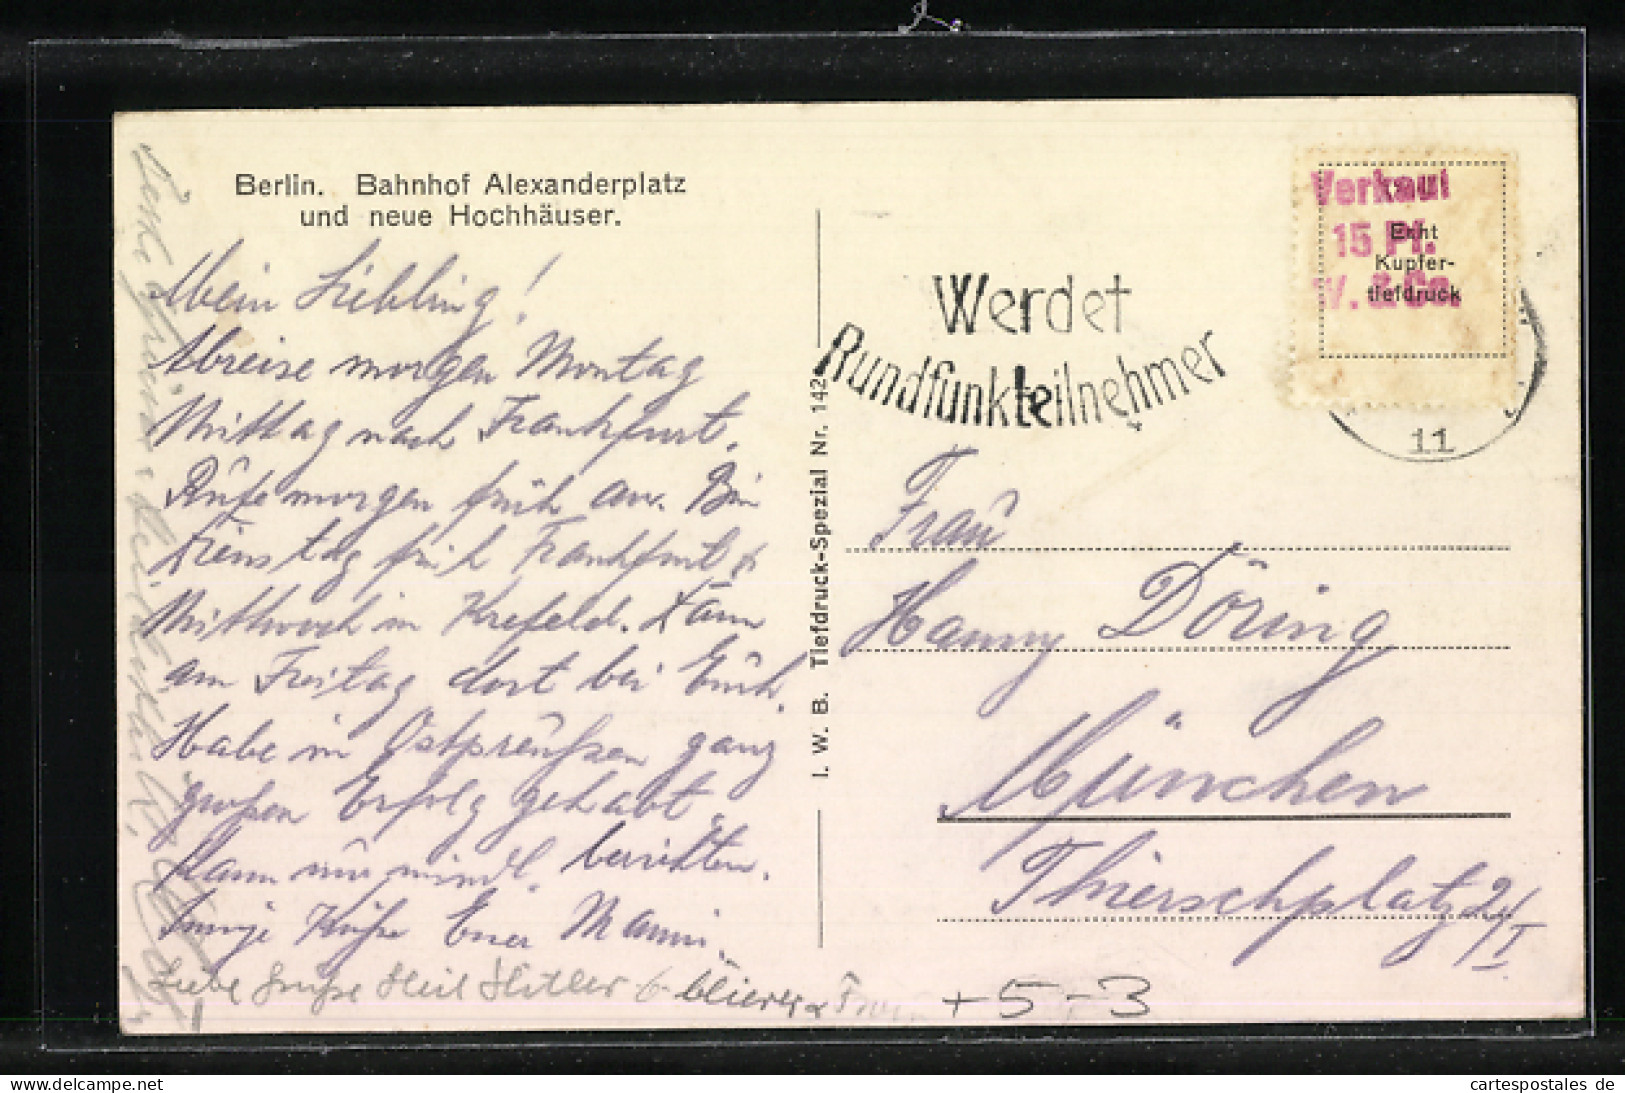 Berlin. Bahnhof Alexanderplatz
und neue Hochhäuser.
Mein Liebling!
Abreise morgen Montag
Mittag nach Frankfurt.
Rufe morgen früh an. Bin
Dienstag früh Frankfurt &
Mittwoch in Krefeld. Dann
am Freitag dort bei Euch.
Habe in Ostpreußen ganz
großen Erfolg gehabt.
Kann nur mündl. berichten.
Innige Küsse Euer Manni.
Liebe Grüße Heil Hitler
I. W. B. Tiefdruck-Spezial Nr. 142
Werdet
Rundfunkteilnehmer
Verkauf
15 Pf.
W. & Co.
Echt
Kupfer-
tiefdruck
11
Frau
Hanny Döring
München
Thierschplatz 2/I
+5-3
cartespostales de